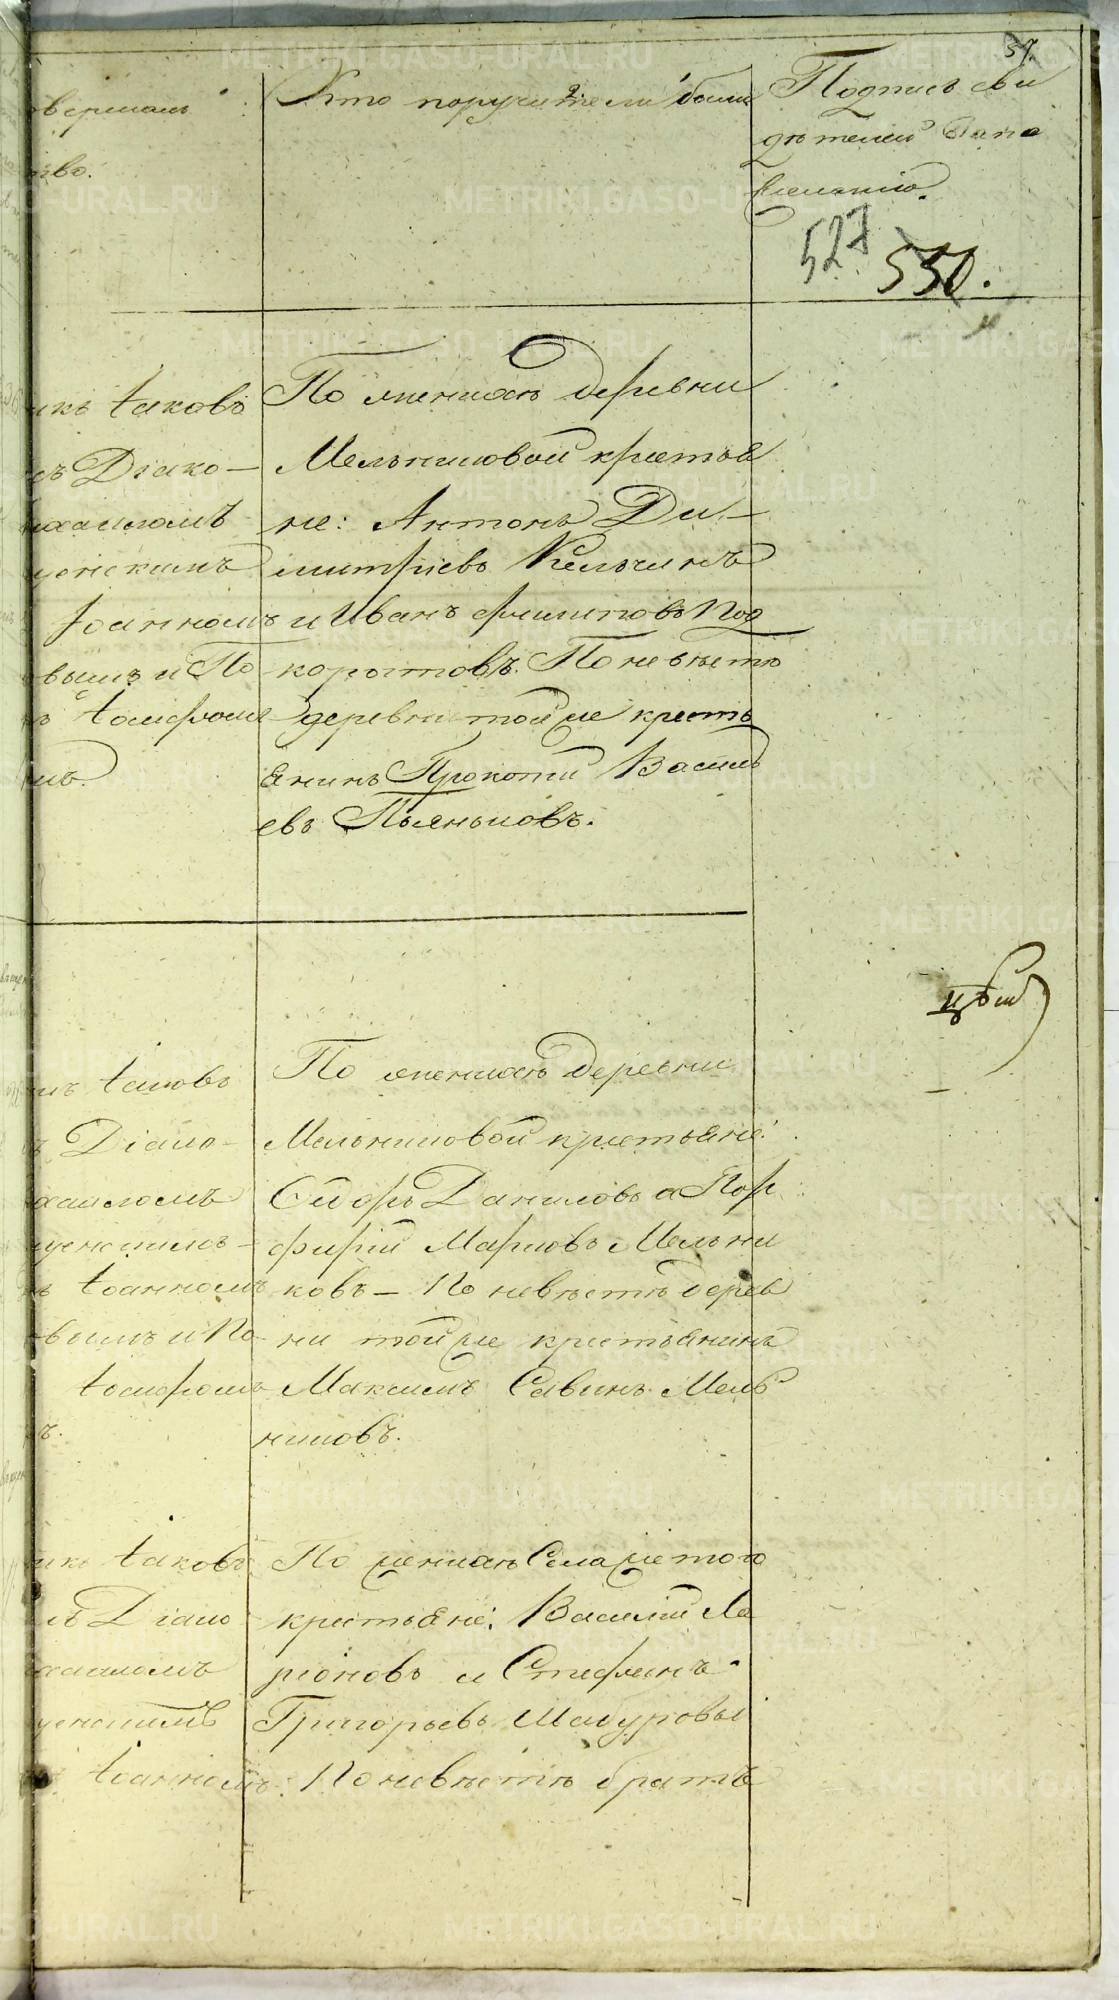 37.
овершалъ
тво.
Кто поручители были
Подпись сви
дѣтелей запо
527 550.
икъ Іаковъ
съ Діако—
ихаиломъ
Іоанномъ
вымъ и По
Іосифомъ
мъ.
По женихѣ деревни
Мельниковой крестья
не: Антонъ Ди—
митріевъ Кельчинъ
и Иванъ Филиповъ Под
коротовъ. По невѣстѣ
деревни той же кресть
янинъ Прокопій Василь
евъ Пьянковъ.
цѣи
мъ Іаковъ
ъ Діако—
хаиломъ
ъ Іоанномъ
вымъ и По—
Іосифомъ
ъ.
По женихѣ деревни
Мельниковой крестьяне:
Сидоръ Даниловъ и Пор
фирій Марковъ Мельни
ковъ — По невѣстѣ дерев
ни той же крестьянинъ
Максимъ Савинъ Мель
никовъ.
икъ Іаковъ
съ Діако
хаиломъ
Іоанномъ
По женихѣ Села же того
крестьяне: Василій Ла
ріоновъ и Стефанъ
Григорьевъ Мабуровы
По невѣстѣ братъ